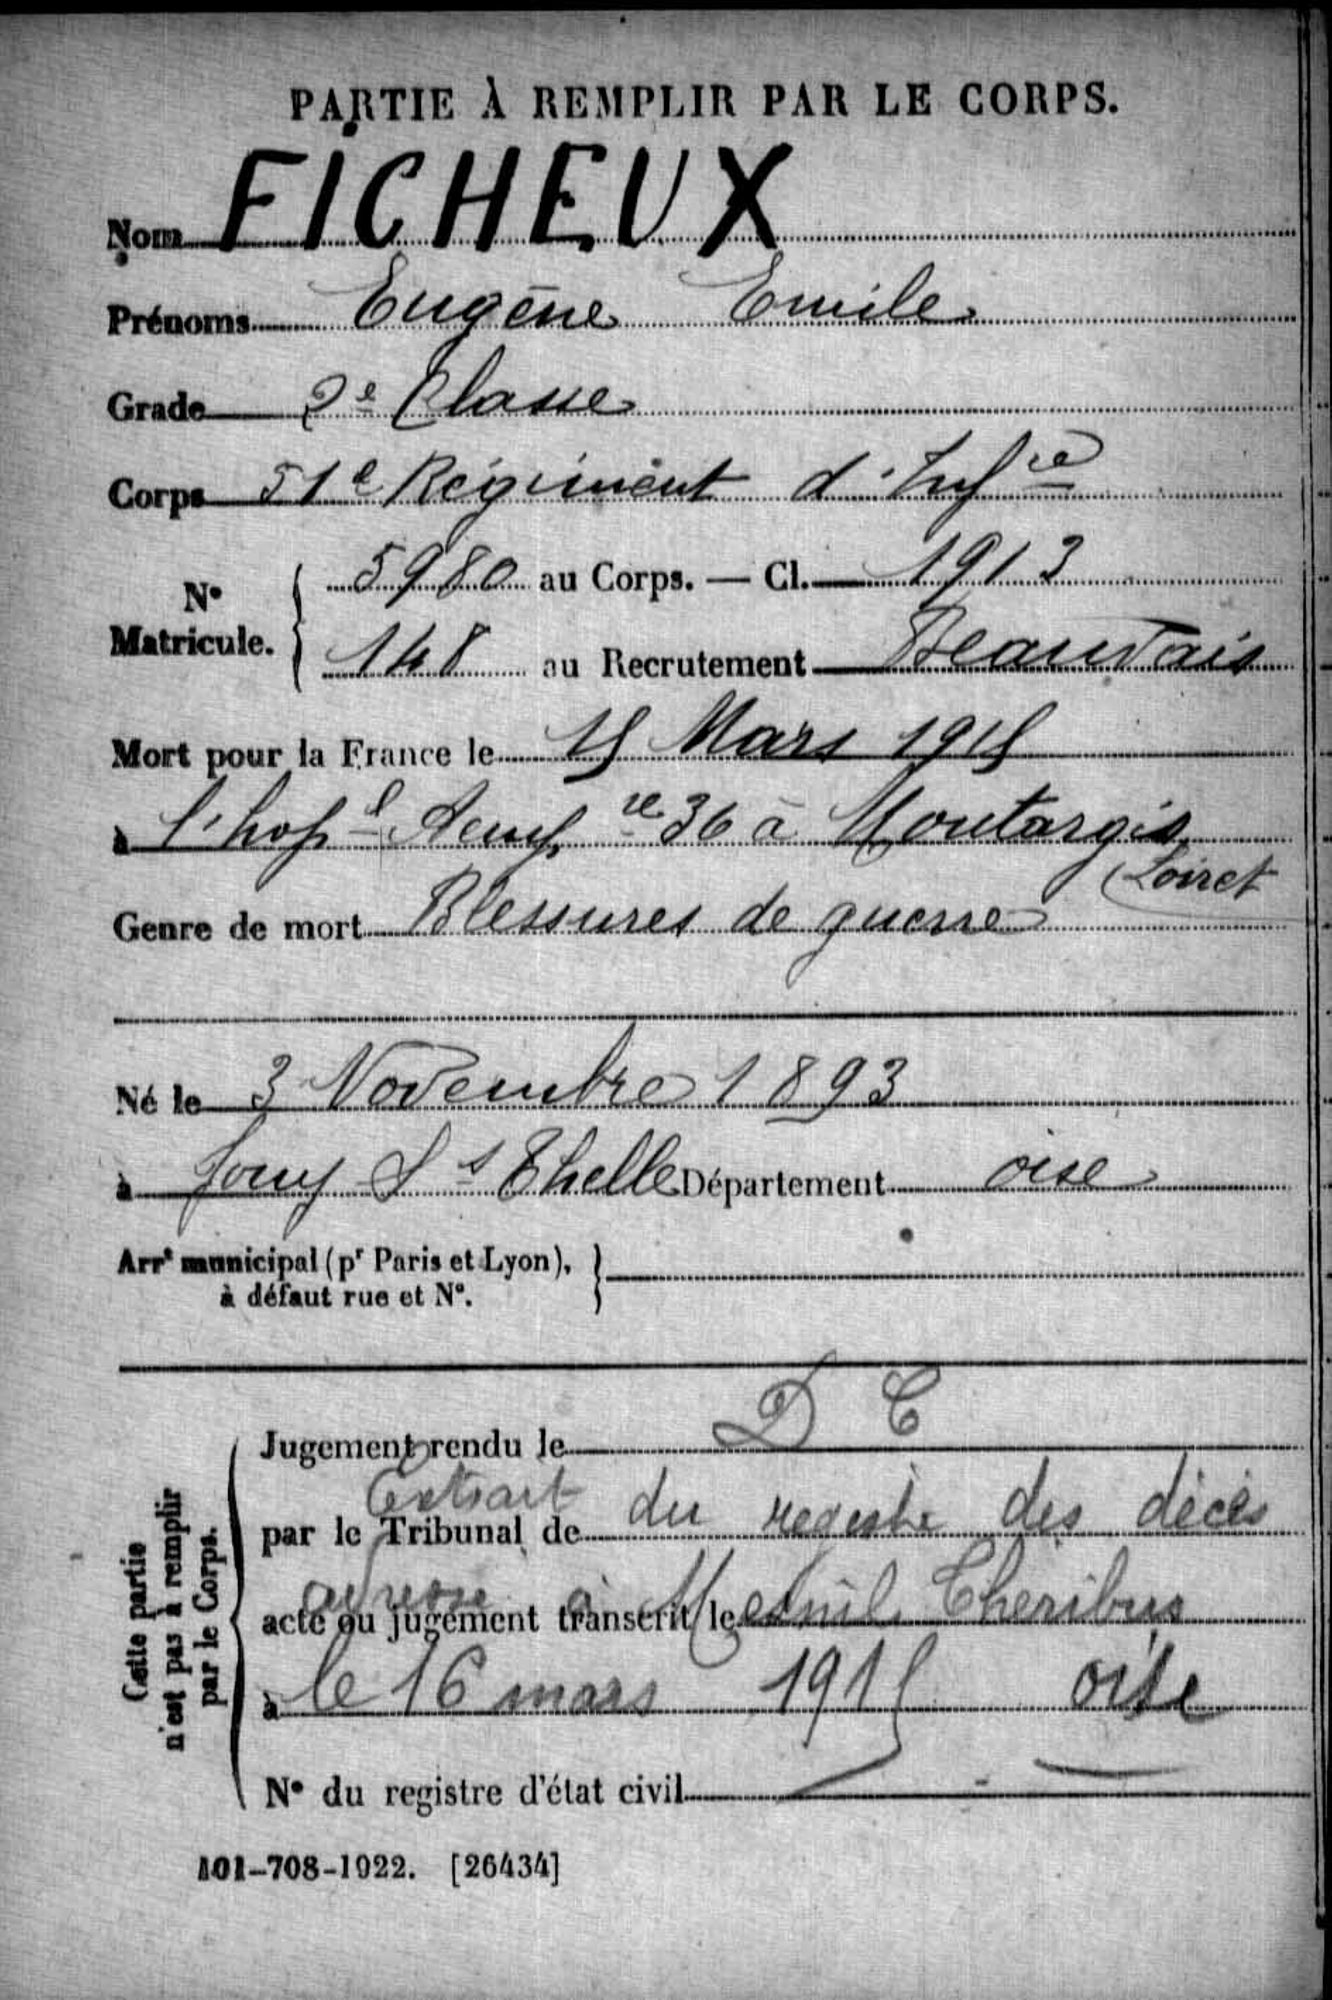 PARTIE À REMPLIR PAR LE CORPS.
Nom FICHEUX
Prénoms Eugène Emile
Grade 2e Classe
Corps 51e Régiment d'Infie
N° Matricule.
5980 au Corps. — Cl. 1913
148 au Recrutement Beauvais
Mort pour la France le 15 Mars 1915
à l'hopl 36 à Montargis
(Loiret
Genre de mort Blessures de guerre
Né le 3 Novembre 1893
à Jouy Ss Thelle Département oise
Arrt municipal (pr Paris et Lyon),
à défaut rue et N°.
Cette partie
n'est pas à remplir
par le Corps.
D C
Jugement rendu le
Extrait du registre des décès
par le Tribunal de
adressé à Mesnil Theribus
acte ou jugement transcrit le
à le 16 mars 1915 oise
N° du registre d'état civil
101-708-1922. [26434]